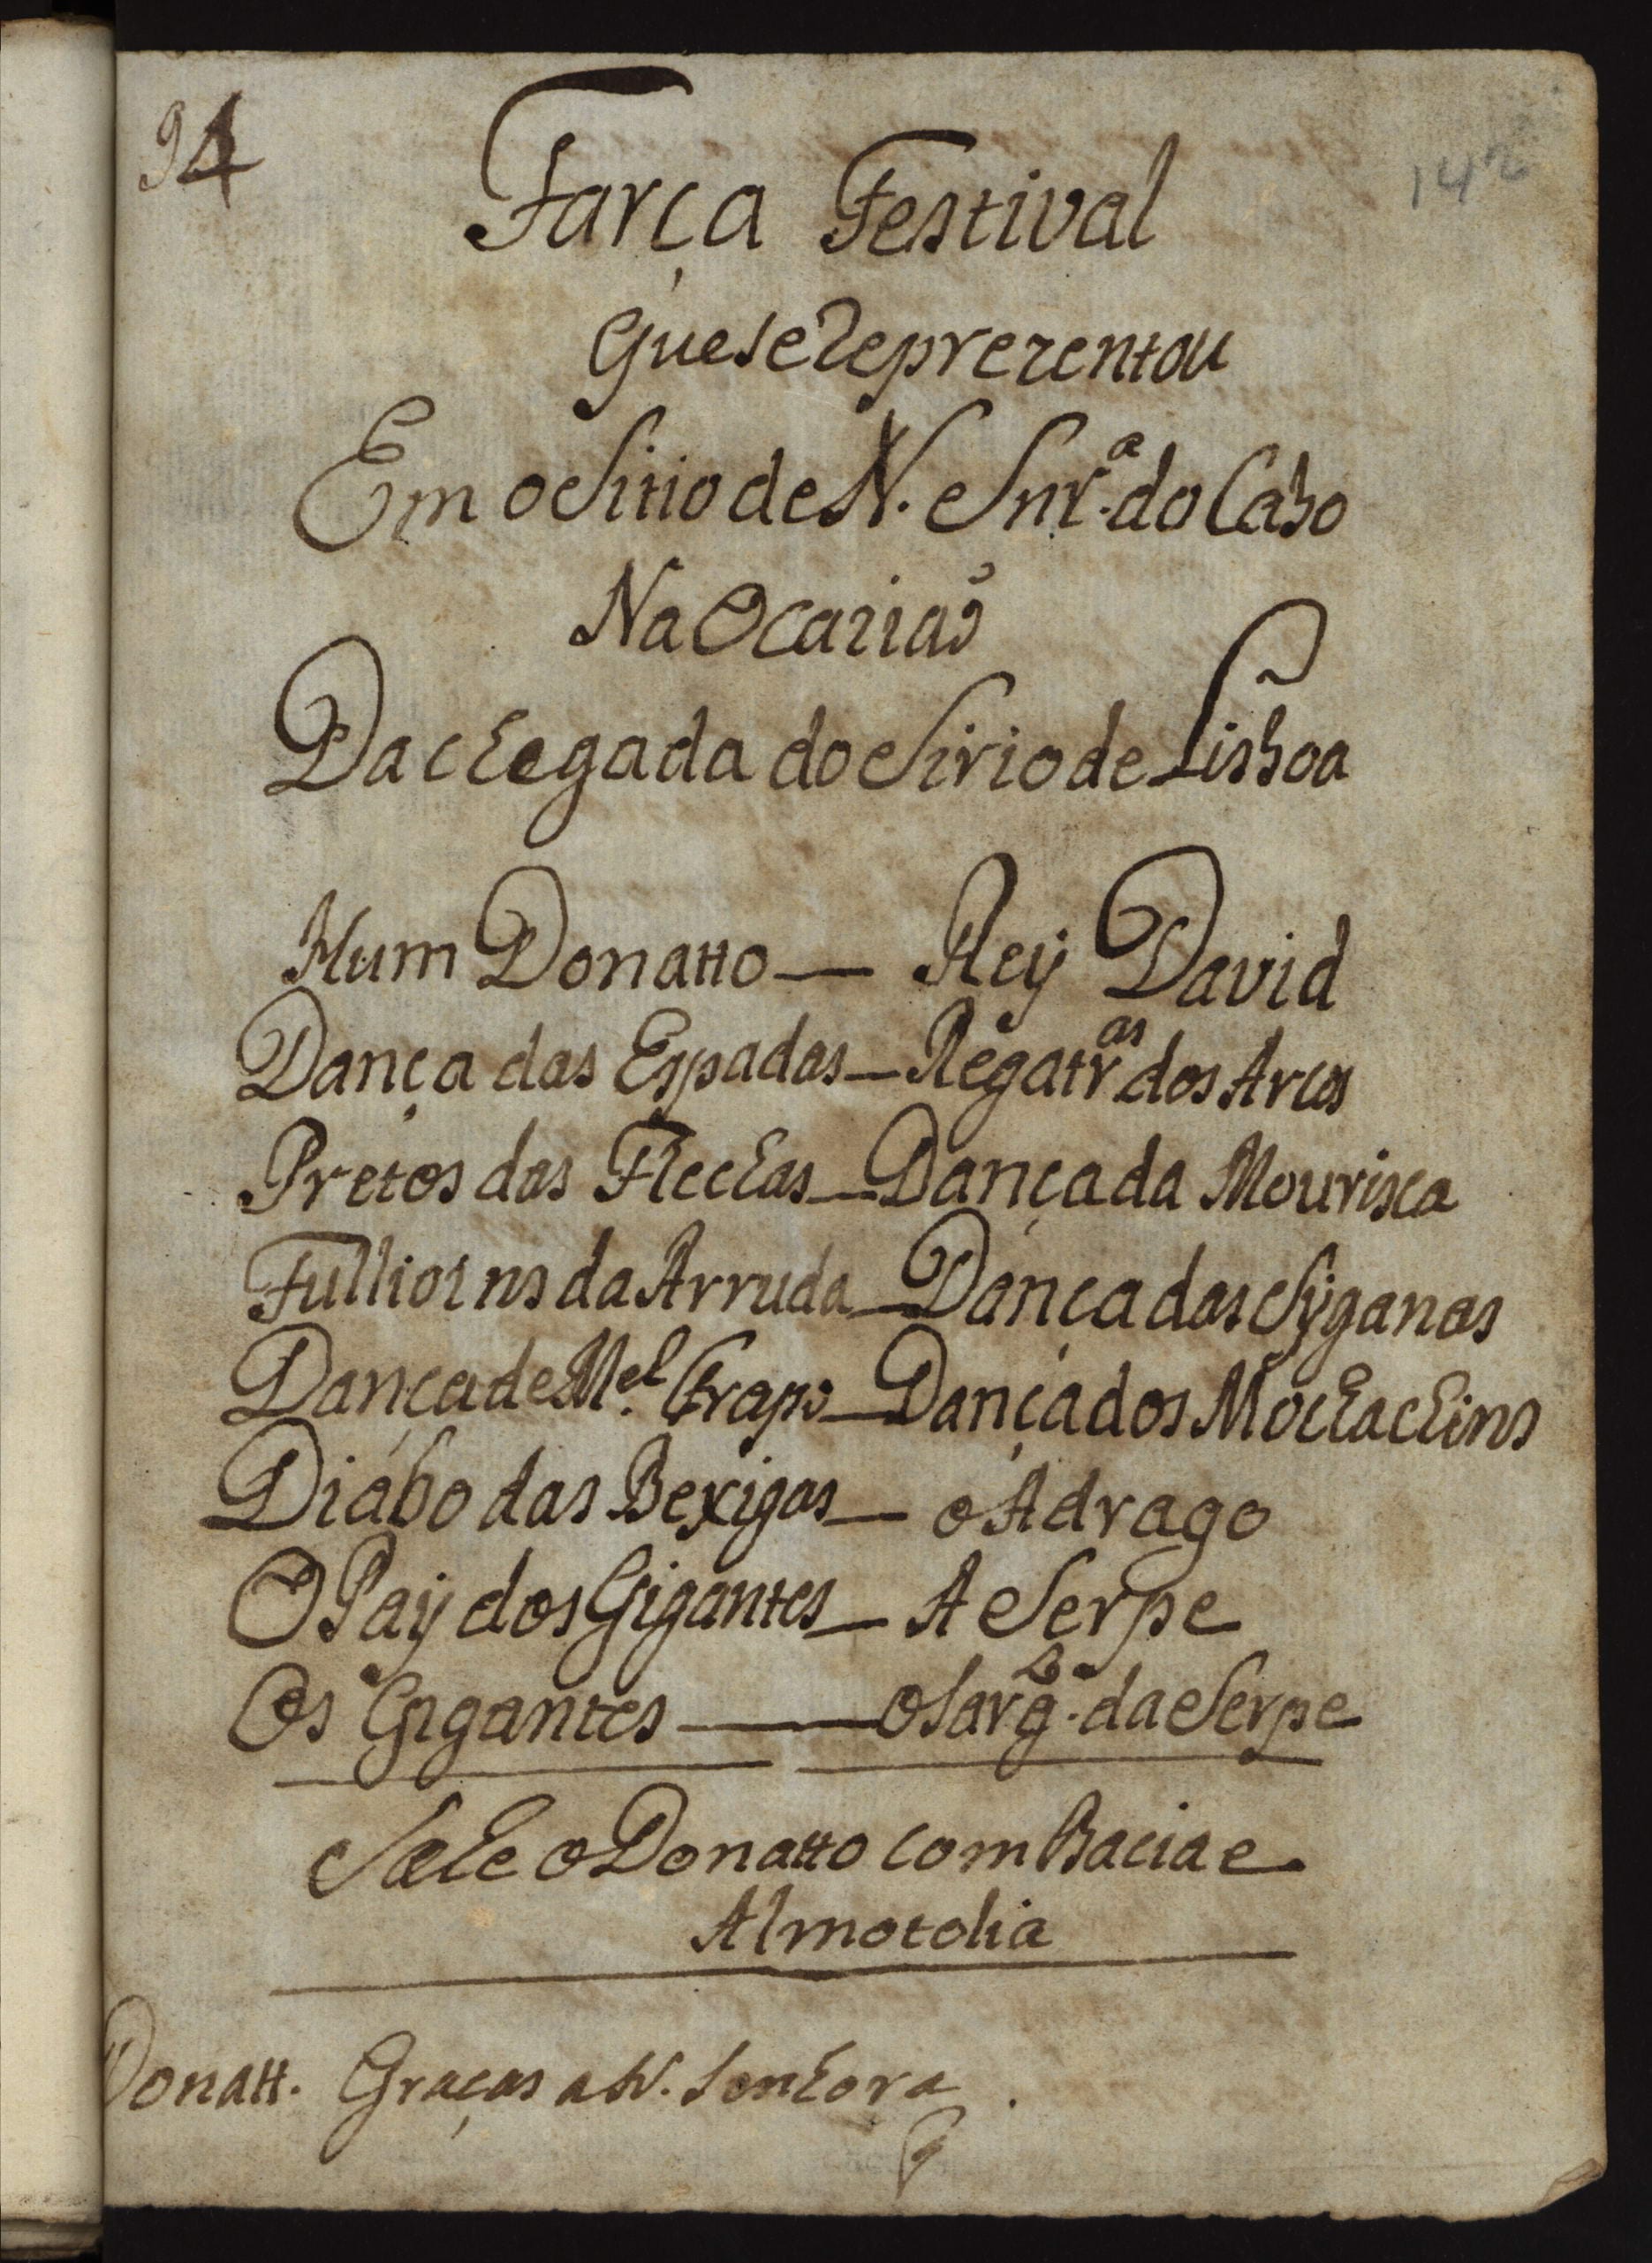 94
142
Farça Festival
Que se Reprezentou
Em o Sitio de N. Snrª. do Cabo
Na Ocaziaõ
Da chegada do Sirio de Lisboa
Hum Donatto — Rey David
Dança das Espadas — Regatrᵃˢ dos Arcos
Pretos das Flechas — Dança da Mourisca
Fullioins da Arruda — Dança das Syganas
Dança de Mᵉˡ. Trapo — Dança dos Mochachins
Diabo das Bexigas — o Adrago
O Pay dos Gigantes — A Serpe
Os Gigantes — o Sargᵗᵒ. da Serpe
Sahe o Donatto com Bacia e
Almotolia
Donatt. Graças a N. Senhora